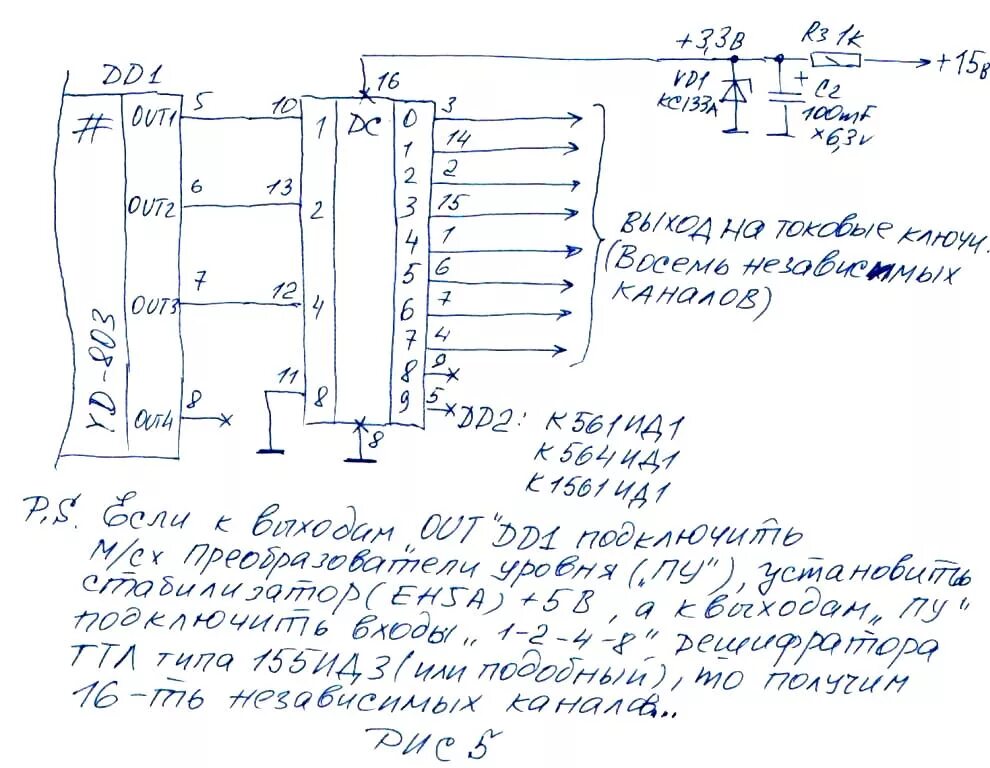 +3,3В
R3 1К
+15В
DD1
16
VD1
КС133А
+ C2
100mF
×6,3v
#
OUT1
5
10
1
DC
0
3
1
14
2
2
OUT2
6
13
2
3
15
4
1
5
6
OUT3
7
12
4
6
7
7
4
8
9
9
5
11
8
YD-803
OUT4
8
8
ВЫХОД НА ТОКОВЫЕ КЛЮЧИ.
(ВОСЕМЬ НЕЗАВИСИМЫХ
КАНАЛОВ)
DD2: К561ИД1
К564ИД1
К1561ИД1
P.S. Если к выходам „OUT" DD1 подключить
м/сх преобразователи уровня („ПУ"), установить
стабилизатор (ЕН5А) +5В, а к выходам „ПУ"
подключить входы „1-2-4-8" дешифратора
ТТЛ типа 155ИД3 (или подобный), то получим
16-ть независимых каналов...
РИС 5